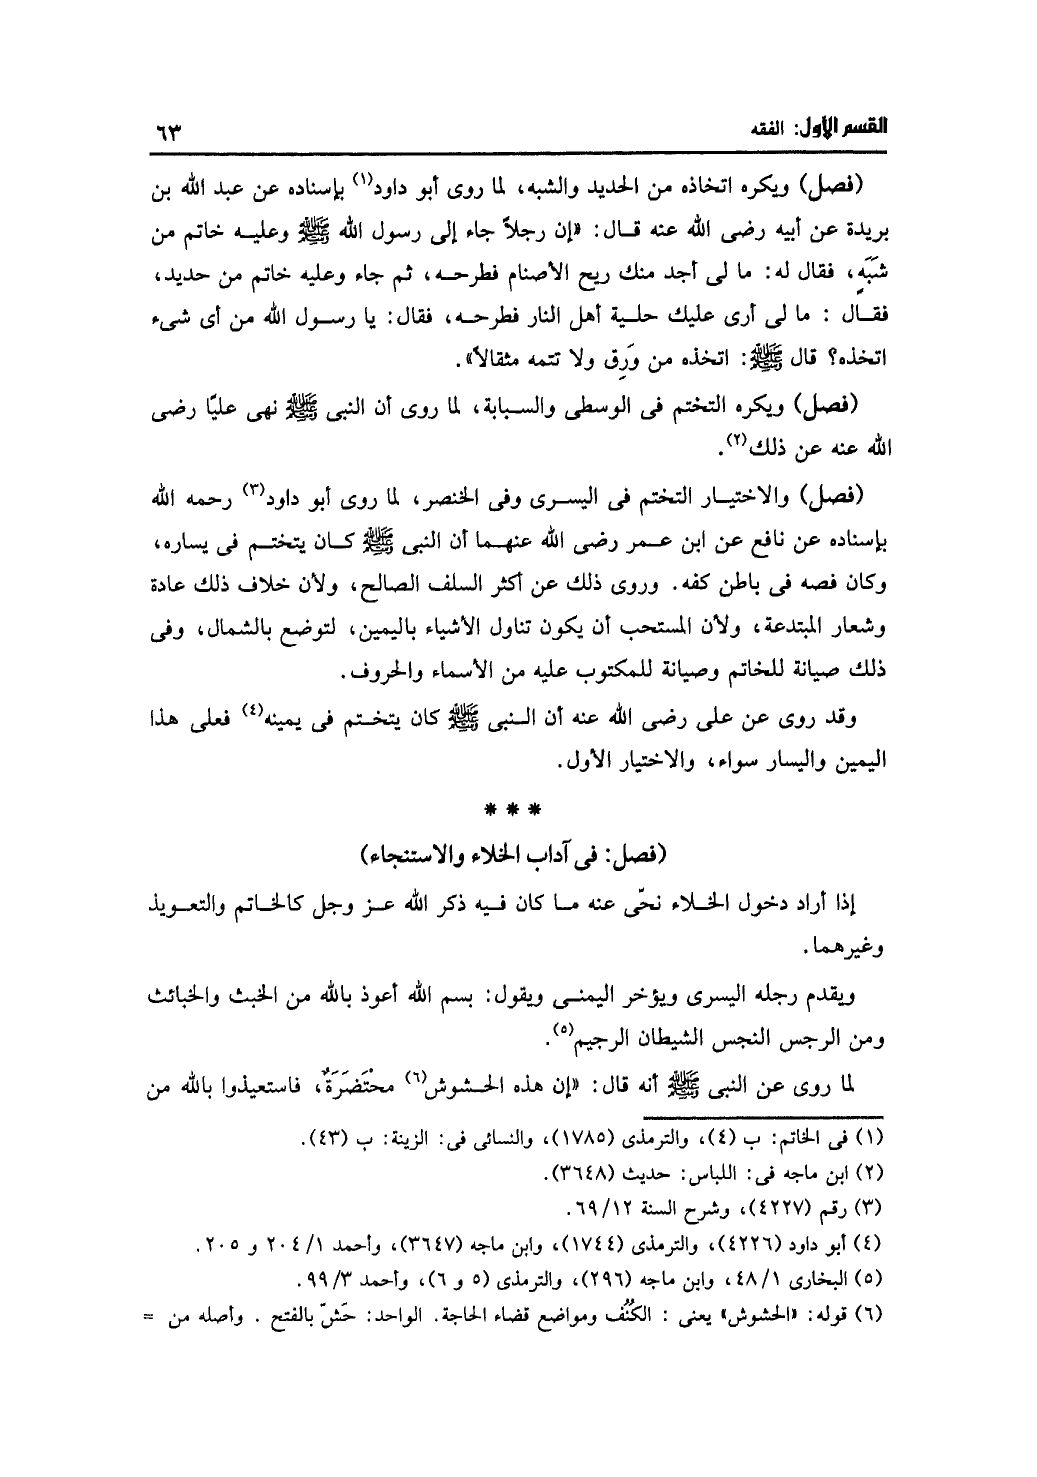 القسم الأول: الفقه ٦٣
(فصل) ويكره اتخاذه من الحديد والشبه، لما روى أبو داود(١) بإسناده عن عبد الله بن
بريدة عن أبيه رضى الله عنه قـال: «إن رجلاً جاء إلى رسول الله ﷺ وعليـه خاتم من
شَبَهٍ، فقال له: ما لى أجد منك ريح الأصنام فطرحـه، ثم جاء وعليه خاتم من حديد،
فقـال : ما لى أرى عليك حلـية أهل النار فطرحـه، فقال: يا رسـول الله من أى شىء
اتخذه؟ قال ﷺ: اتخذه من وَرِق ولا تتمه مثقالاً».
(فصل) ويكره التختم فى الوسطى والسـبابة، لما روى أن النبى ﷺ نهى عليًا رضى
الله عنه عن ذلك(٢).
(فصل) والاختيـار التختم فى اليسرى وفى الخنصر، لما روى أبو داود(٣) رحمه الله
بإسناده عن نافع عن ابن عـمر رضى الله عنهـما أن النبى ﷺ كـان يتختـم فى يساره،
وكان فصه فى باطن كفه. وروى ذلك عن أكثر السلف الصالح، ولأن خلاف ذلك عادة
وشعار المبتدعة، ولأن المستحب أن يكون تناول الأشياء باليمين، لتوضع بالشمال، وفى
ذلك صيانة للخاتم وصيانة للمكتوب عليه من الأسماء والحروف.
وقد روى عن على رضى الله عنه أن النـبى ﷺ كان يتخـتم فى يمينه(٤) فعلى هذا
اليمين واليسار سواء، والاختيار الأول.
* * *
(فصل: فى آداب الخلاء والاستنجاء)
إذا أراد دخول الخـلاء نحّى عنه مـا كان فيـه ذكر الله عـز وجل كالخـاتم والتعـويذ
وغيرهما.
ويقدم رجله اليسرى ويؤخر اليمنـى ويقول: بسم الله أعوذ بالله من الخبث والخبائث
ومن الرجس النجس الشيطان الرجيم(٥).
لما روى عن النبى ﷺ أنه قال: «إن هذه الحـشوش(٦) محْتَضَرَةٌ، فاستعيذوا بالله من
(١) فى الخاتم: ب (٤)، والترمذى (١٧٨٥)، والنسائى فى: الزينة: ب (٤٣).
(٢) ابن ماجه فى: اللباس: حديث (٣٦٤٨).
(٣) رقم (٤٢٢٧)، وشرح السنة ٦٩/١٢.
(٤) أبو داود (٤٢٢٦)، والترمذى (١٧٤٤)، وابن ماجه (٣٦٤٧)، وأحمد ٢٠٤/١ و ٢٠٥.
(٥) البخارى ٤٨/١، وابن ماجه (٢٩٦)، والترمذى (٥ و ٦)، وأحمد ٩٩/٣.
(٦) قوله: «الحشوش» يعنى : الكُنُف ومواضع قضاء الحاجة. الواحد: حَشّ بالفتح . وأصله من =